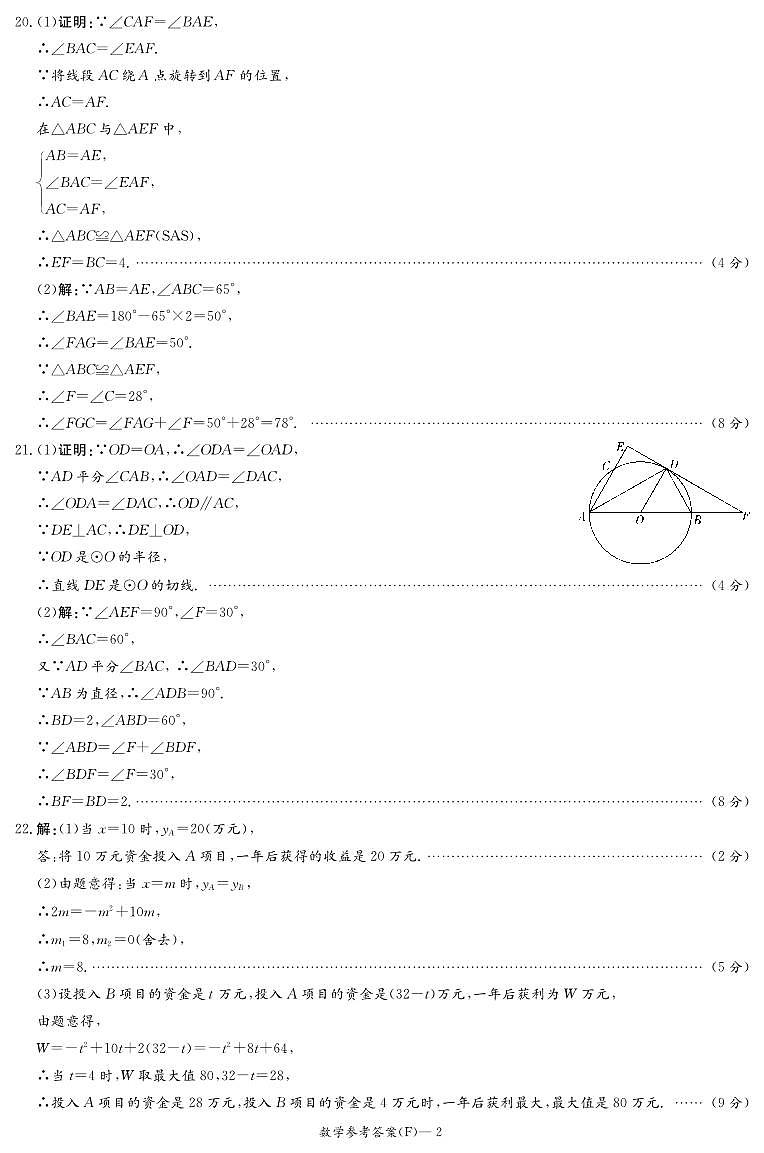 20. (1)证明:∵∠CAF=∠BAE,
∴∠BAC=∠EAF.
∵将线段AC绕A点旋转到AF的位置,
∴AC=AF.
在△ABC与△AEF中,
AB=AE,
∠BAC=∠EAF,
AC=AF,
∴△ABC≌△AEF(SAS),
∴EF=BC=4. …… (4分)
(2)解:∵AB=AE,∠ABC=65°,
∴∠BAE=180°-65°×2=50°,
∴∠FAG=∠BAE=50°.
∵△ABC≌△AEF,
∴∠F=∠C=28°,
∴∠FGC=∠FAG+∠F=50°+28°=78°. …… (8分)
21. (1)证明:∵OD=OA,∴∠ODA=∠OAD,
∵AD平分∠CAB,∴∠OAD=∠DAC,
∴∠ODA=∠DAC,∴OD∥AC,
∵DE⊥AC,∴DE⊥OD,
∵OD是⊙O的半径,
∴直线DE是⊙O的切线. …… (4分)
E
C D
A O B F
(2)解:∵∠AEF=90°,∠F=30°,
∴∠BAC=60°,
又∵AD平分∠BAC, ∴∠BAD=30°,
∵AB为直径,∴∠ADB=90°.
∴BD=2,∠ABD=60°,
∵∠ABD=∠F+∠BDF,
∴∠BDF=∠F=30°,
∴BF=BD=2. …… (8分)
22. 解:(1)当x=10时,y_A=20(万元),
答:将10万元资金投入A项目,一年后获得的收益是20万元. …… (2分)
(2)由题意得:当x=m时,y_A=y_B,
∴2m=-m²+10m,
∴m₁=8,m₂=0(舍去),
∴m=8. …… (5分)
(3)设投入B项目的资金是t万元,投入A项目的资金是(32-t)万元,一年后获利为W万元,
由题意得,
W=-t²+10t+2(32-t)=-t²+8t+64,
∴当t=4时,W取最大值80,32-t=28,
∴投入A项目的资金是28万元,投入B项目的资金是4万元时,一年后获利最大,最大值是80万元. …… (9分)
数学参考答案(F)— 2